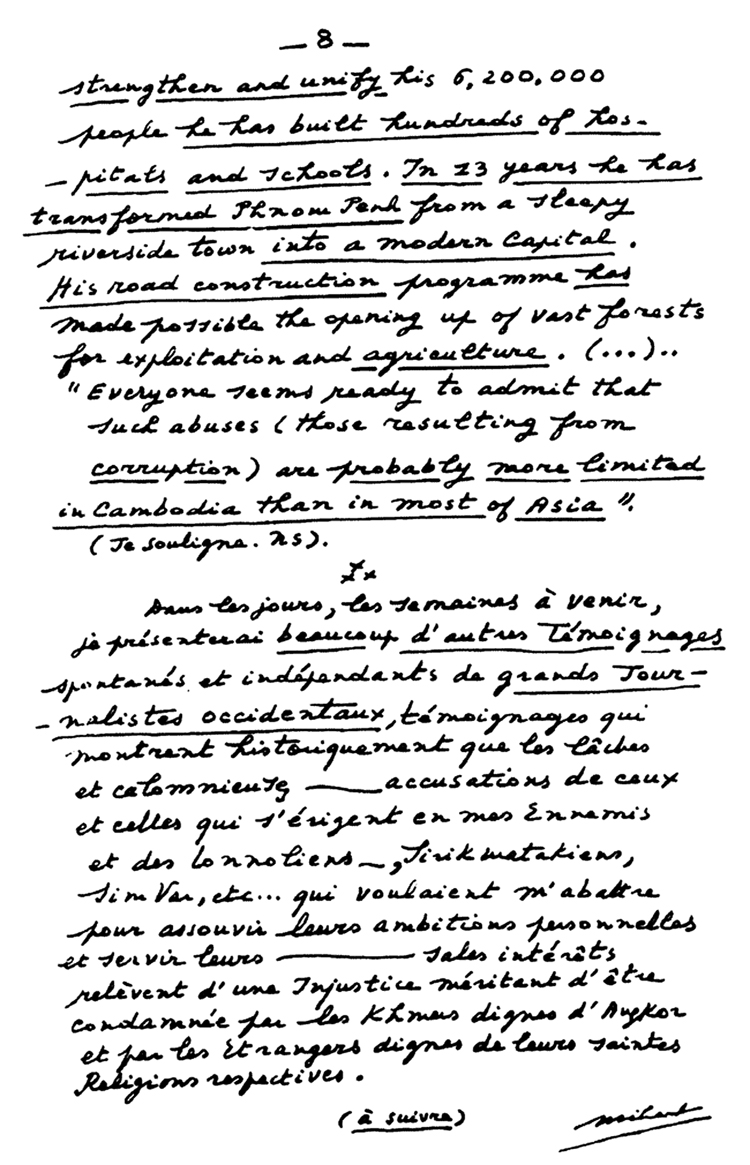 — 8 —
strengthen and unify his 6,200,000
people he has built hundreds of hos-
-pitals and schools. In 13 years he has
transformed Phnom Penh from a sleepy
riverside town into a modern Capital.
His road construction programme has
made possible the opening up of vast forests
for exploitation and agriculture. (...)..
"Everyone seems ready to admit that
such abuses (those resulting from
corruption) are probably more limited
in Cambodia than in most of Asia".
(Je souligne. NS).
Dans les jours, les semaines à venir,
je présenterai beaucoup d'autres Témoignages
spontanés et indépendants de grands Jour-
-nalistes occidentaux, témoignages qui
montrent historiquement que les lâches
et calomnieuses accusations de ceux
et celles qui s'érigent en mes Ennemis
et des Lonnoliens, Sirikmatakiens,
Sim Var, etc... qui voulaient m'abattre
pour assouvir leurs ambitions personnelles
et servir leurs sales intérêts
relèvent d'une Injustice méritant d'être
condamnée par les Khmers dignes d'Angkor
et par les Etrangers dignes de leurs saintes
Religions respectives.
(à suivre)